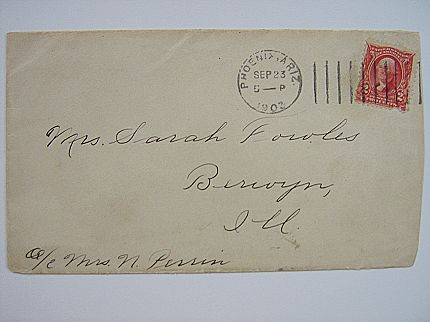 PHOENIX, ARIZ.
SEP 23
5 - P
1902
Mrs. Sarah Fowles
Berwyn,
Ill.
c/o Mrs. N. Perrin